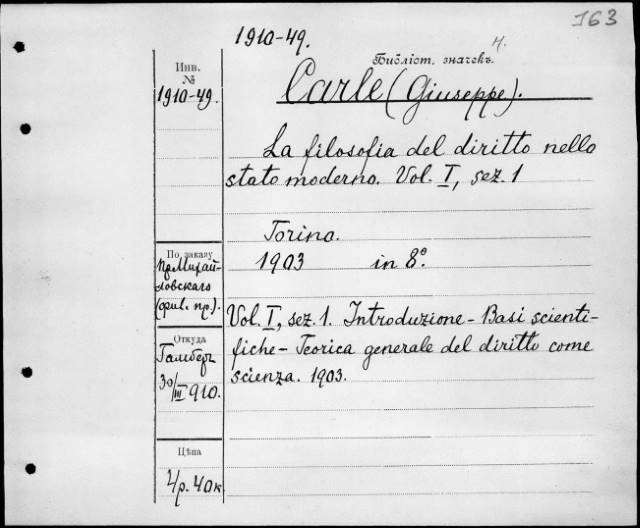 163
1910-49.
Н.
Инв.
№
Библіот. значекъ.
1910-49.
Carle (Giuseppe).
La filosofia del diritto nello
stato moderno. Vol. I, sez. 1
Torino.
1903 in 8º.
По заказу
пр. Михай-
ловскаго
(фил. пр.).
Vol. I, sez. 1. Introduzione - Basi scienti-
fiche - Teorica generale del diritto come
scienza. 1903.
Откуда
30/III 910.
Цѣна
4р. 40к